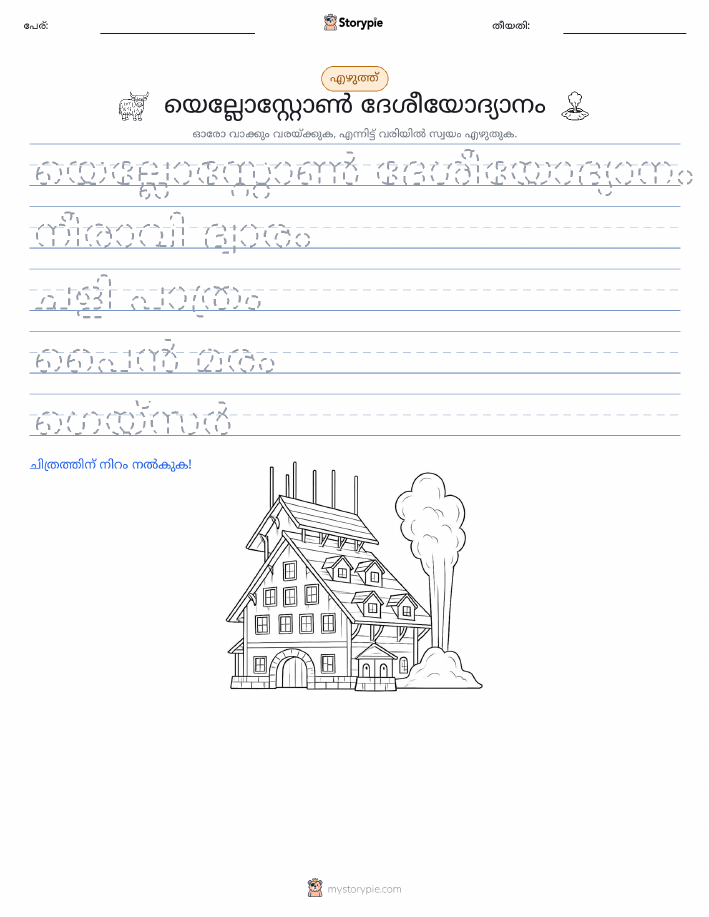 പേര്:
Storypie
തീയതി:
എഴുത്ത്
യെല്ലോസ്റ്റോൺ ദേശീയോദ്യാനം
ഓരോ വാക്കും വരയ്ക്കുക, എന്നിട്ട് വരിയിൽ സ്വയം എഴുതുക.
യെല്ലോസ്റ്റോൺ ദേശീയോദ്യാനം
നീരാവി ദ്വാരം
ചളി പാത്രം
പൈൻ മരം
ഗെയ്സർ
ചിത്രത്തിന് നിറം നൽകുക!
mystorypie.com